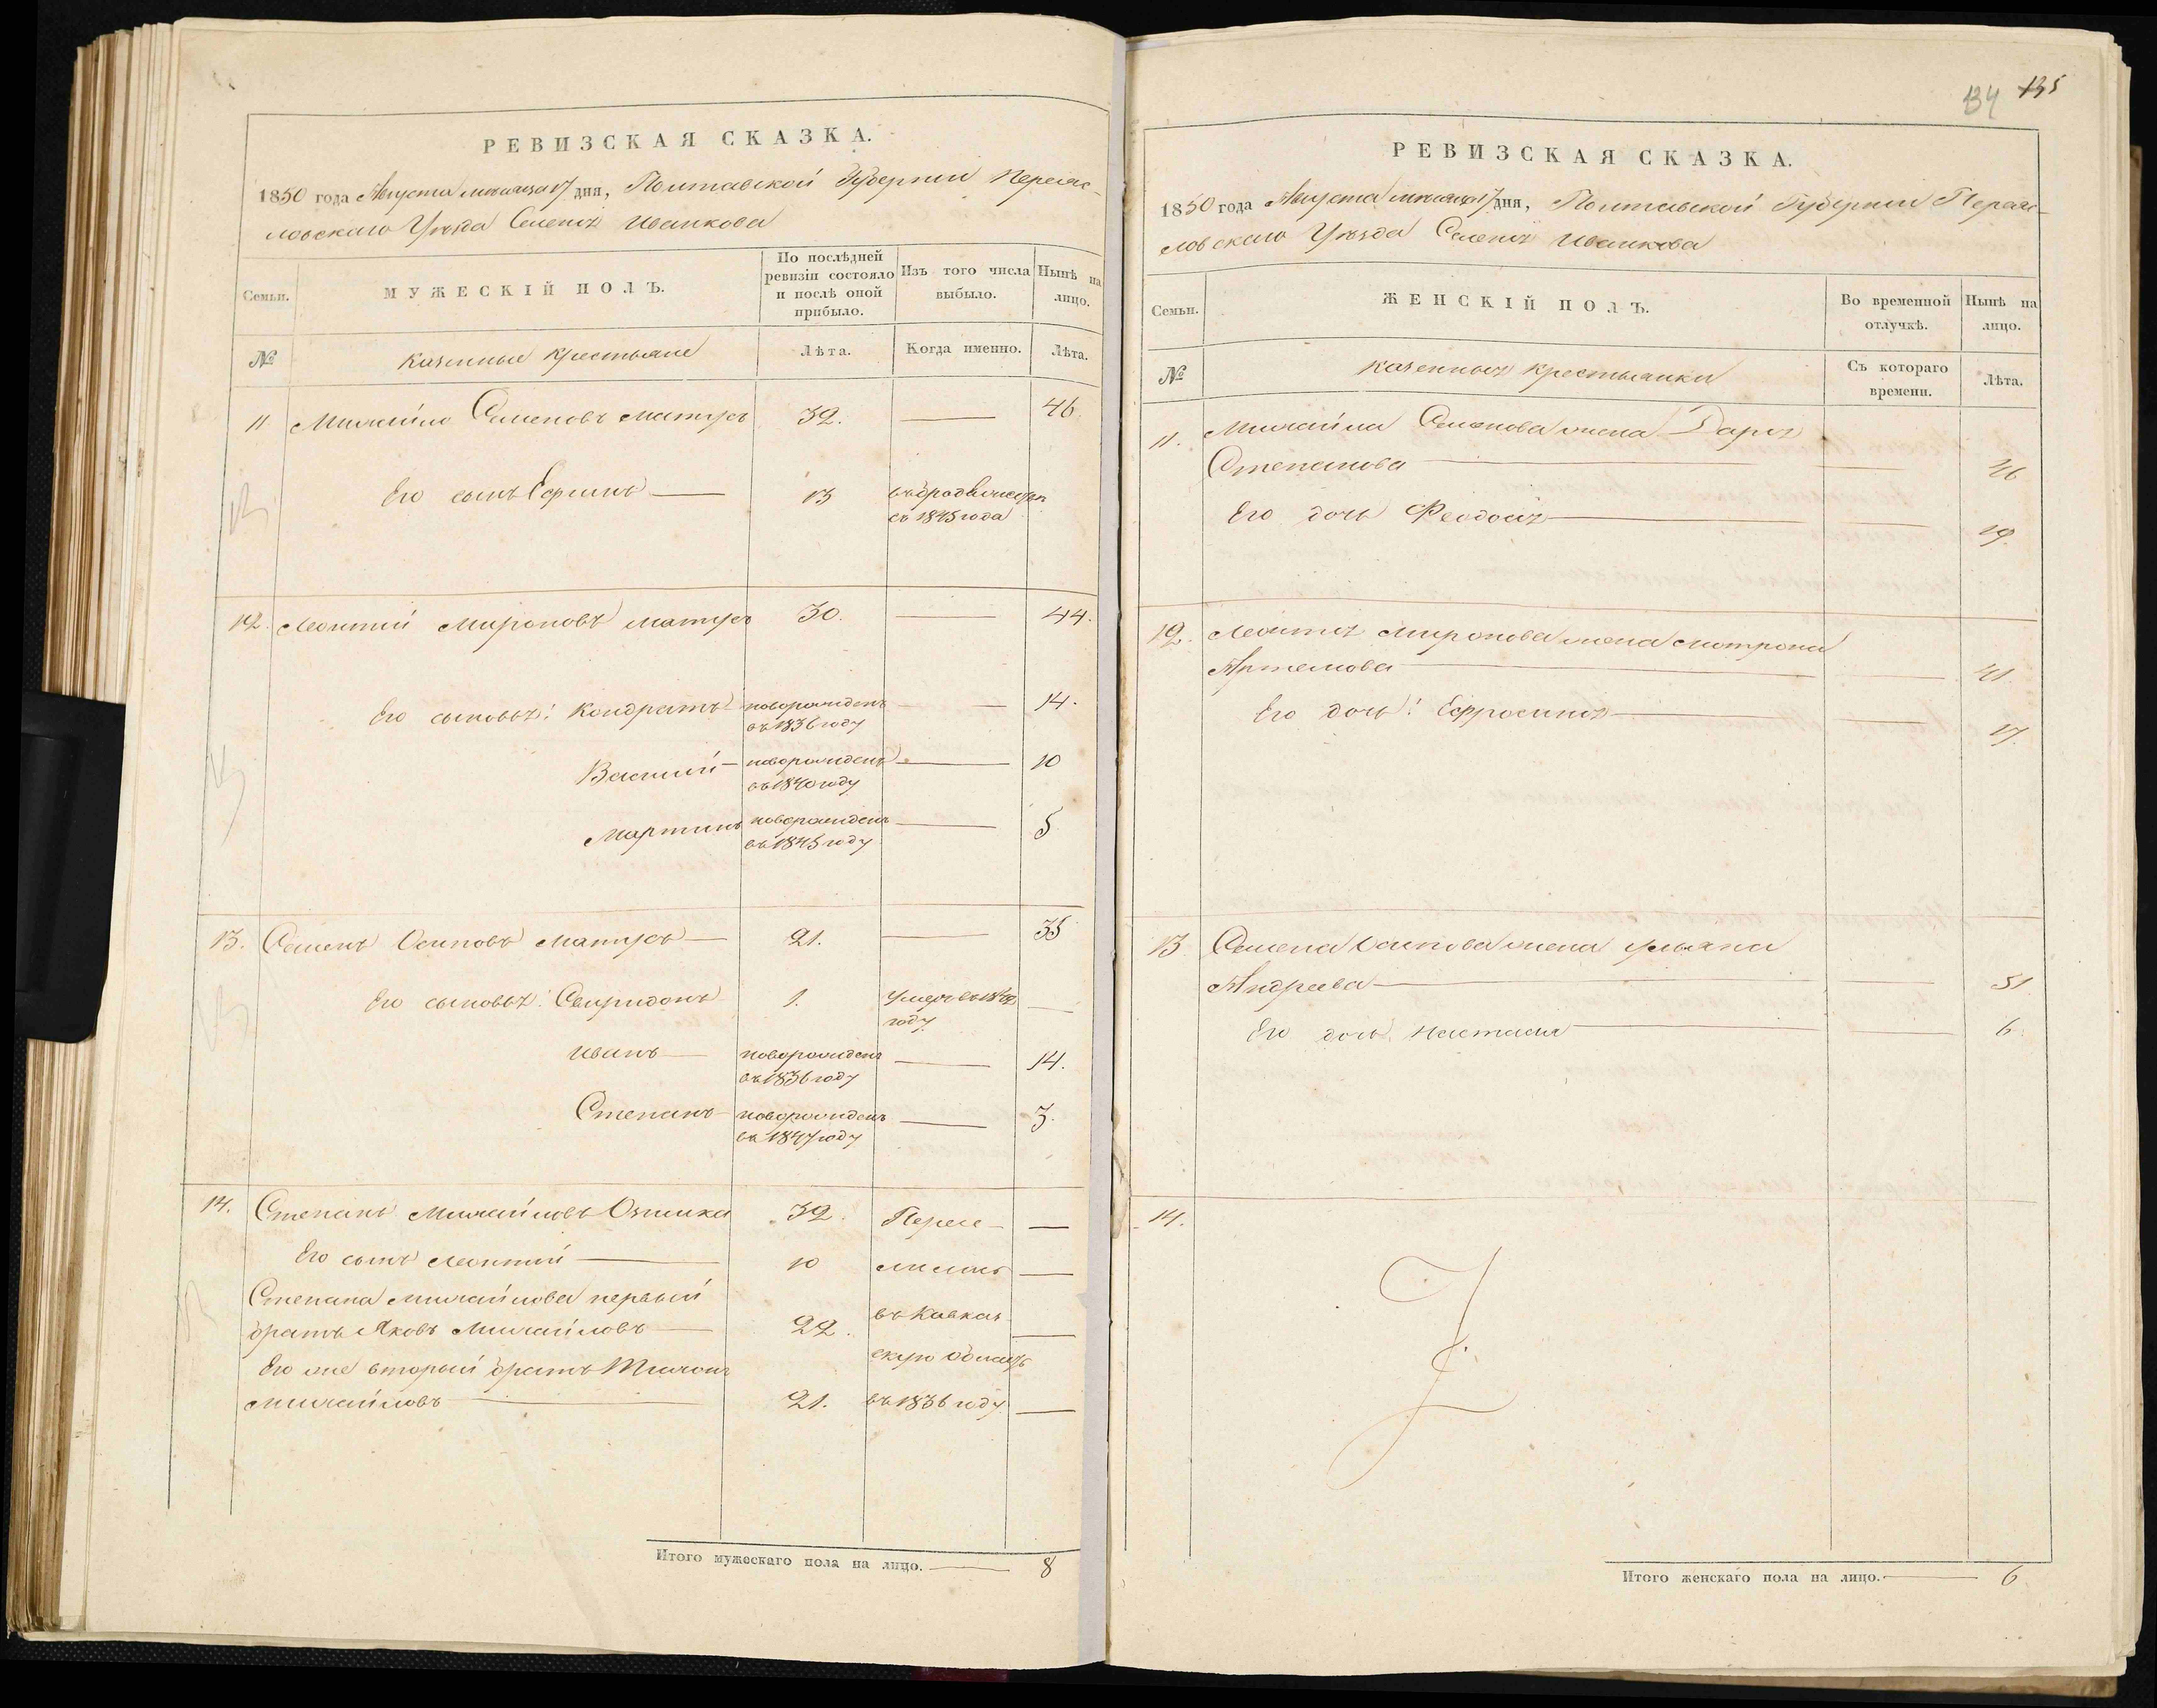 РЕВИЗСКАЯ СКАЗКА.
1850 года Августа месяца 17 дня, Полтавской Губернии Переяс-
ловскаго Уѣзда Селенія Иванкова
Семьи.
МУЖЕСКІЙ ПОЛЪ.
По послѣдней ревизіи состояло и послѣ оной прибыло.
Изъ того числа выбыло.
Нынѣ на лицо.
№
казенные крестьяне
Лѣта.
Когда именно.
Лѣта.
11 Михайло Семеновъ Матусъ 32. 46.
Его сынъ Ефимъ 13 въ бродяжествѣ
съ 1845 года
12. Леонтий Мироновъ Матусъ 30. 44.
Его сыновья: Кондратъ новорожденъ 14.
въ 1836 году
Василий новорожденъ 10
въ 1840 году
Мартинъ новорожденъ 5
въ 1845 году
13. Семенъ Осиповъ Матусъ 21. 35
Его сыновья: Свиридонъ 1. умеръ въ
году
Иванъ новорожденъ 14.
въ 1836 году
Степанъ новорожденъ 3.
въ 1847 году
14. Степанъ Михайловъ 32. Пересе-
Его сынъ Леонтий 10 лились
Степана Михайлова первый
братъ Яковъ Михайловъ 22. въ Кавказ
Его же вторый братъ Тихонъ скую область
Михайловъ 21. въ 1836 году
Итого мужескаго пола на лицо. 8
134 135
РЕВИЗСКАЯ СКАЗКА.
1850 года Августа месяца 17 дня, Полтавской Губернии Переяс-
ловскаго Уѣзда Селенія Иванкова
Семьи.
ЖЕНСКІЙ ПОЛЪ.
Во временной отлучкѣ.
Нынѣ на лицо.
№
казенныя крестьянки
Съ котораго времени.
Лѣта.
11. Михайла Семенова жена Дарья
Степанова 46
Его дочь Феодосія 19.
12. Леонтія Миронова жена Мотрона
Артемова 41.
Его дочь: Ефросинія 17.
13 Семена Осипова жена Ульяна
Андреева 31
Его дочь Настасия 6.
14.
Итого женскаго пола на лицо. 6